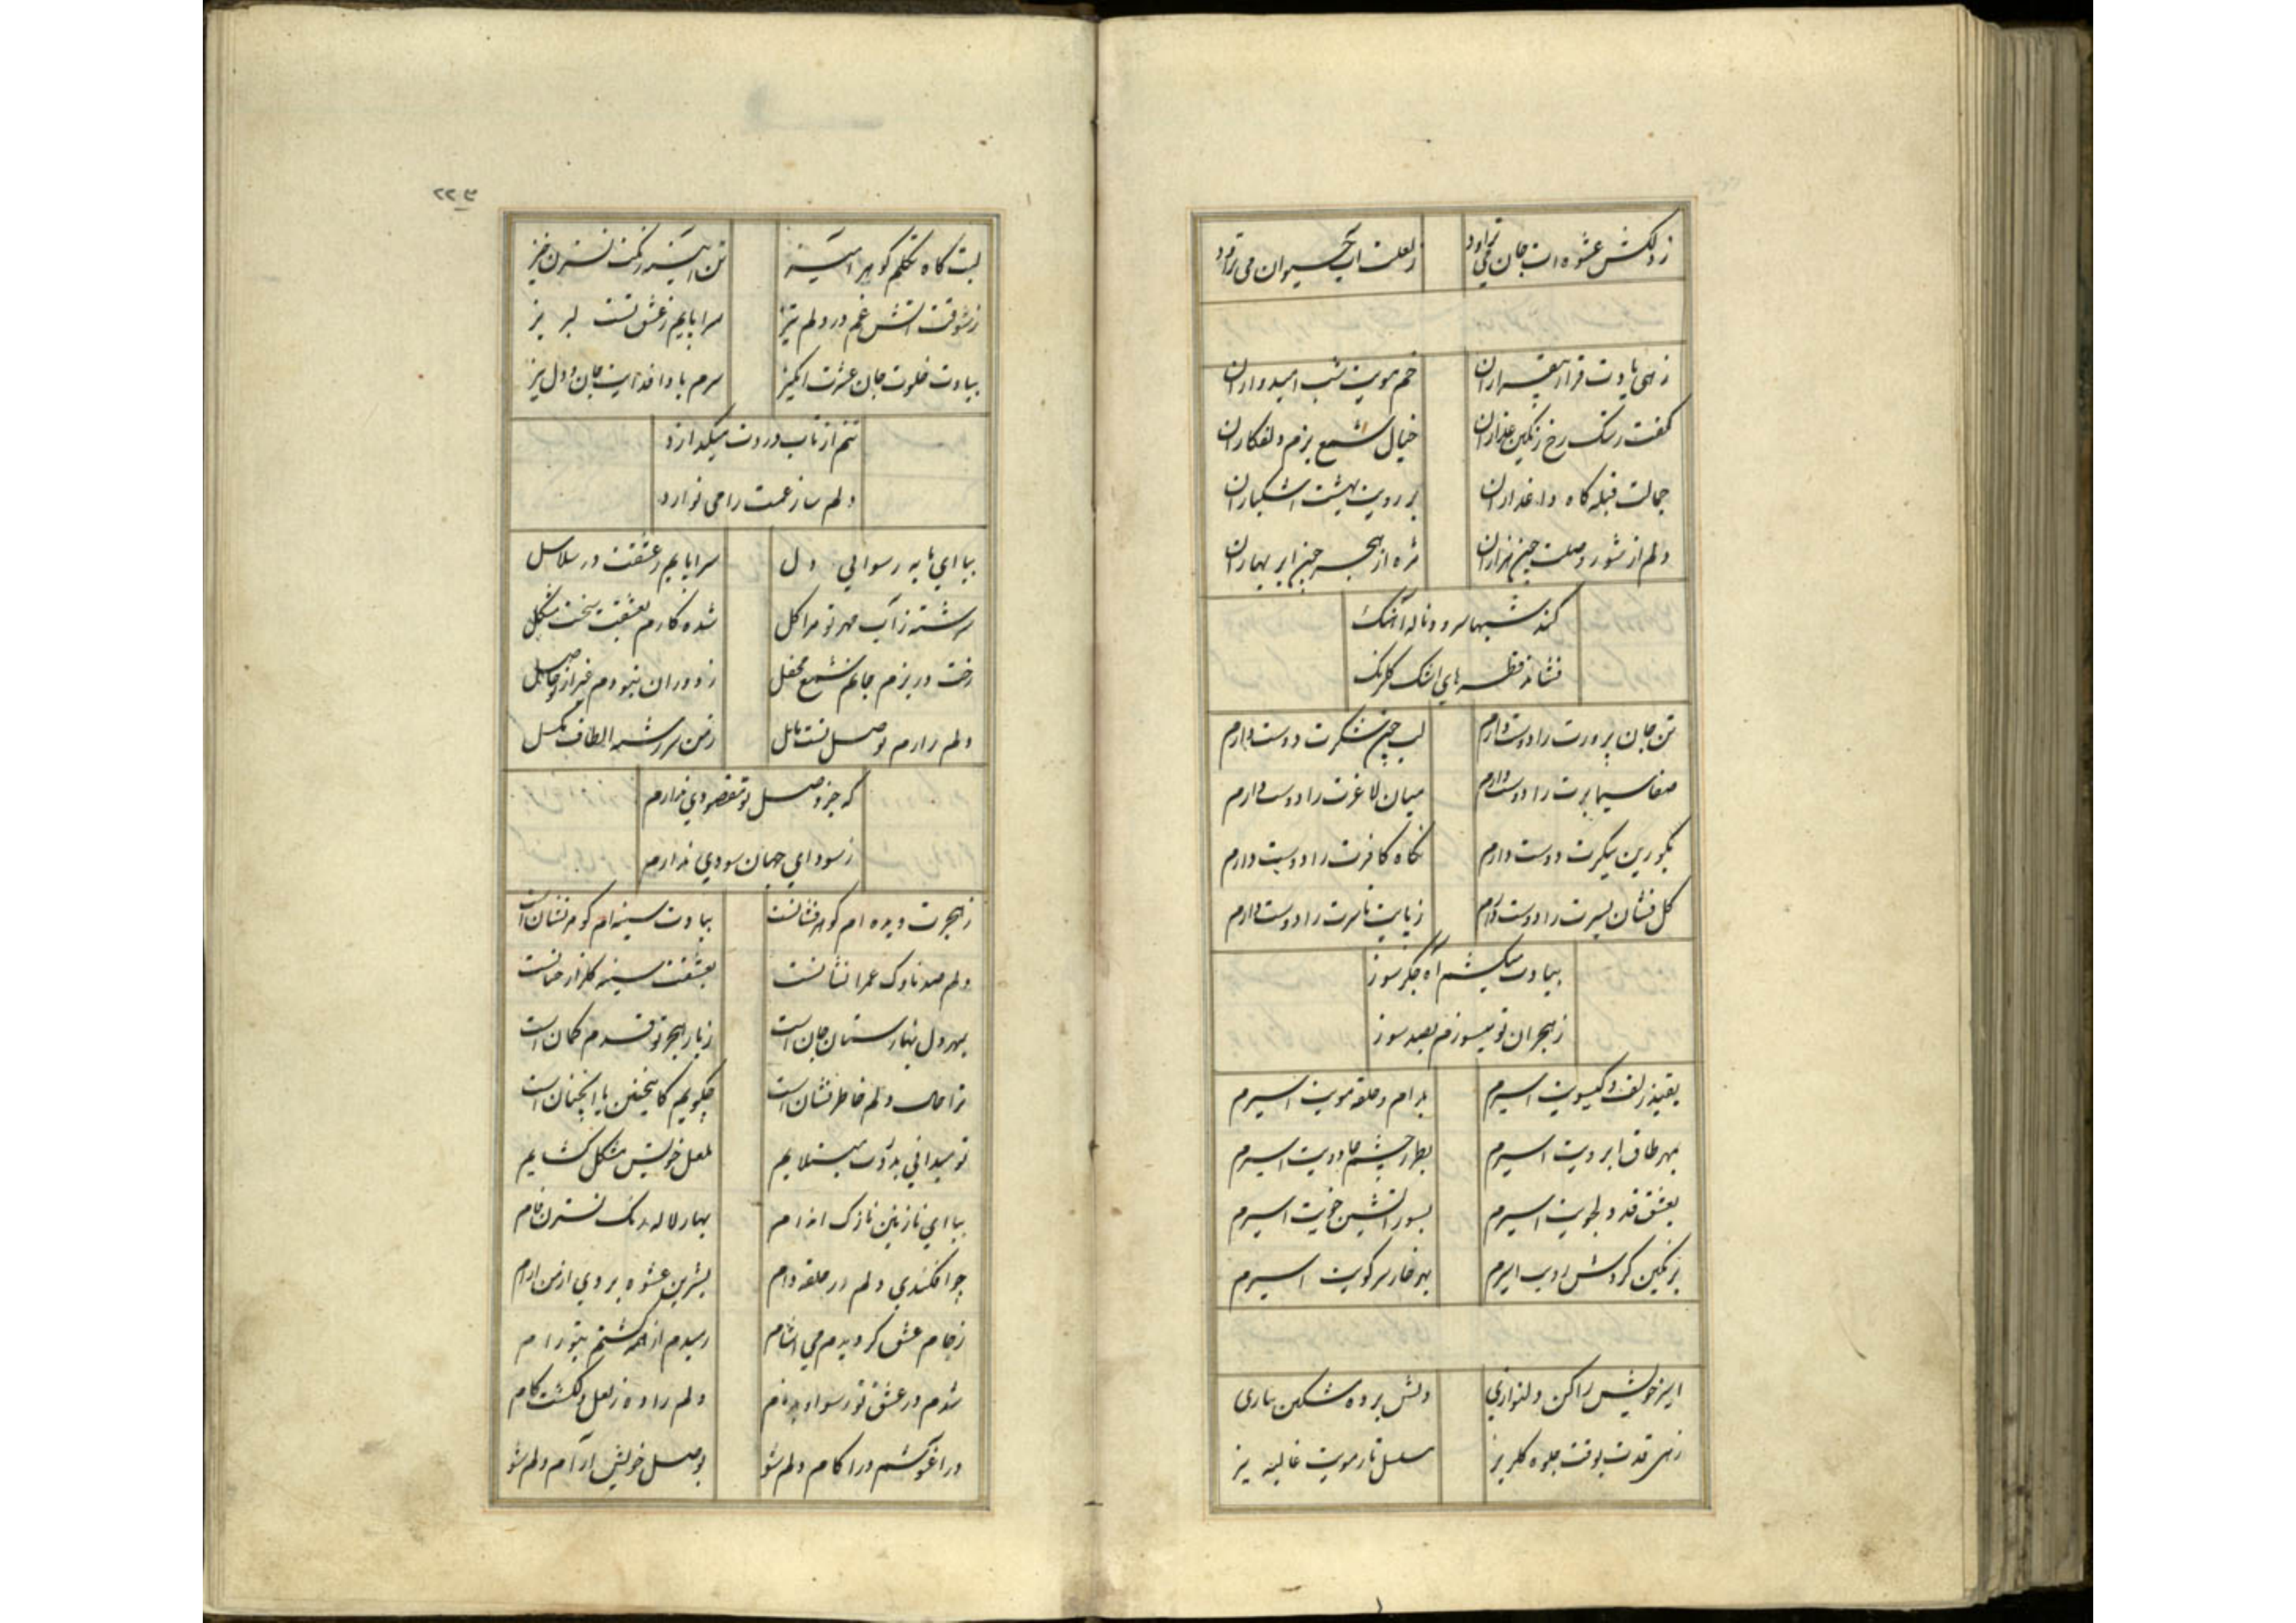 ز دلکش عشوه ات جان می تراود ز لعلت آب حیوان می تراود
زهی یادت قرار بیقراران خم مویت شب امیدواران
کفت رشک رخ رنگین عذاران خیال شمع بزم دلفکاران
جمالت قبله گاه داغداران بر رویت بهشت اشکباران
دلم از شور وصلت چون هزاران مژه از هجر چون ابر بهاران
کند شبها سرود ناله آهنگ
فشاند قطره های اشک گلرنگ
تن جان پرورت را دوست دارم لب چون شکرت دوست دارم
صفا سیما برت را دوست دارم میان لاغرت را دوست دارم
بلورین پیکرت دوست دارم نگاه کافرت را دوست دارم
گل فشان بسترت را دوست دارم ز پایت تا سرت را دوست دارم
بیادت میکشم آه جگر سوز
ز هجران تو میسوزم بصد سوز
بقید زلف و گیسویت اسیرم بدام و حلقه مویت اسیرم
بهر طاق ابرویت اسیرم بطرز چشم جادویت اسیرم
بعشق قد دلجویت اسیرم بسوز آتشین خویت اسیرم
برنگین گردش رویت اسیرم بهر خار سر کویت اسیرم
اسیر خویش را کن دلنوازی دلش برده مشکین
زهی قدت بوقت جلوه گلریز مسلسل تار مویت غالیه بیز
۲۲۳
لبت گاه تکلم گوهر آمیز تن آیینه رنگت نسترن خیز
ز شوقت آتش غم در دلم تیز سراپایم ز عشق تست لبریز
بیادت خلوت جان عشرت انگیز سرم بادا فدایت جان و دل نیز
تنم از تاب دردت میگدازد
دلم ساز غمت را می نوازد
بیا ای مایه رسوایی دل سراپایم ز عشقت در سلاسل
سرشته ز آب مهر تو مرا گل شده کارم بعشقت سخت مشکل
رخت در بزم جانم شمع محفل ز دوران نبودم غیر از تو حاصل
دلم دارم بوصل تست مایل ز من سر رشته الطاف مگسل
که جز وصل تو مقصودی ندارم
ز سودای جهان سودی ندارم
ز هجرت دیده ام گوهر فشانست بیادت سینه ام گوهر نشان است
دلم صد ناوک غم را نشانست بعشقت سینه گلزار جنانست
بهر دل بهارستان جان است ز بار هجر تو قدم کمان است
ترا حال دلم خاطر نشان است چگویم کاینچنین یا آنچنان است
تو میدانی بدردت مبتلایم لعل خویش مشکل گشایم
بیا ای نازنین نازک اندام بهار لاله رنگ نسترن فام
چو افکندی دلم در حلقه دام بشیرین عشوه بردی از من آرام
ز جام عشق گردیدم می آشام رمیدم از همه گشتم بتو رام
شدم در عشق تو رسوا و بدنام دلم را ده ز لعل دلکشت کام
در آغوشم درا کام دلم شو بوصل خویش آرام دلم شو